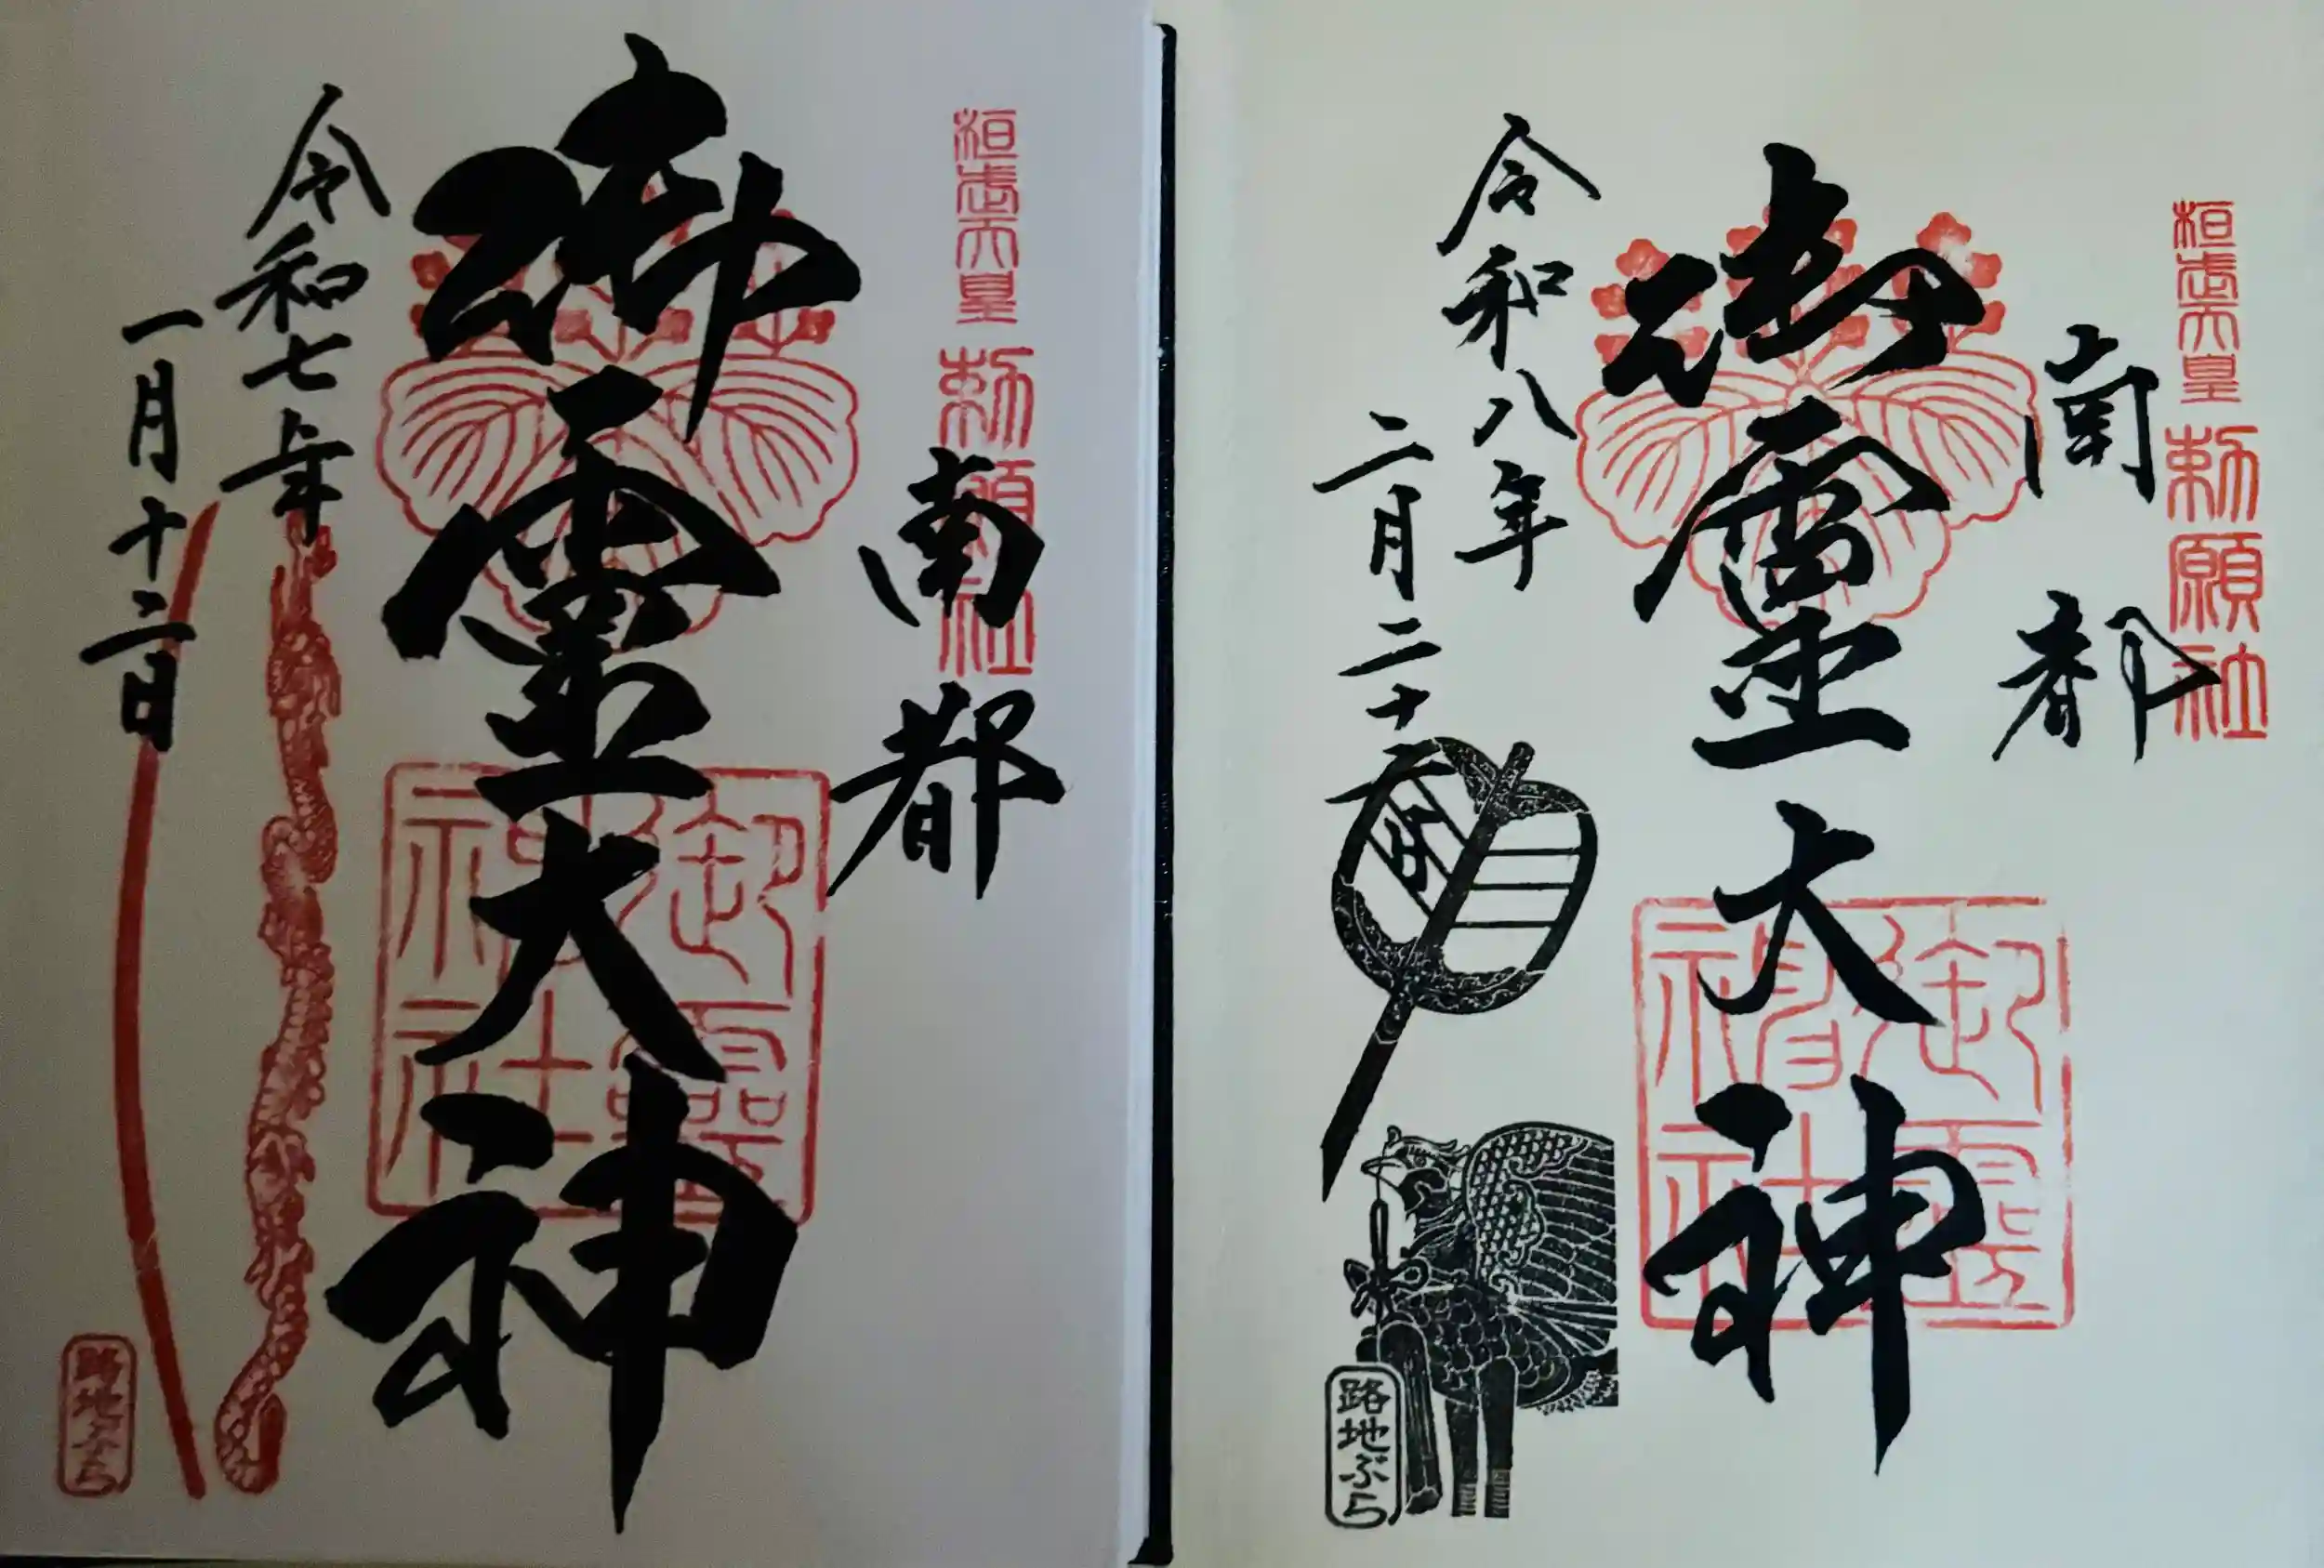 桓武天皇 勅願社
南都
御霊大神
御靈神社
令和八年
二月二十二日
路地ぶら
桓武天皇 勅願社
南都
御霊大神
御靈神社
令和七年
一月十二日
路地ぶら